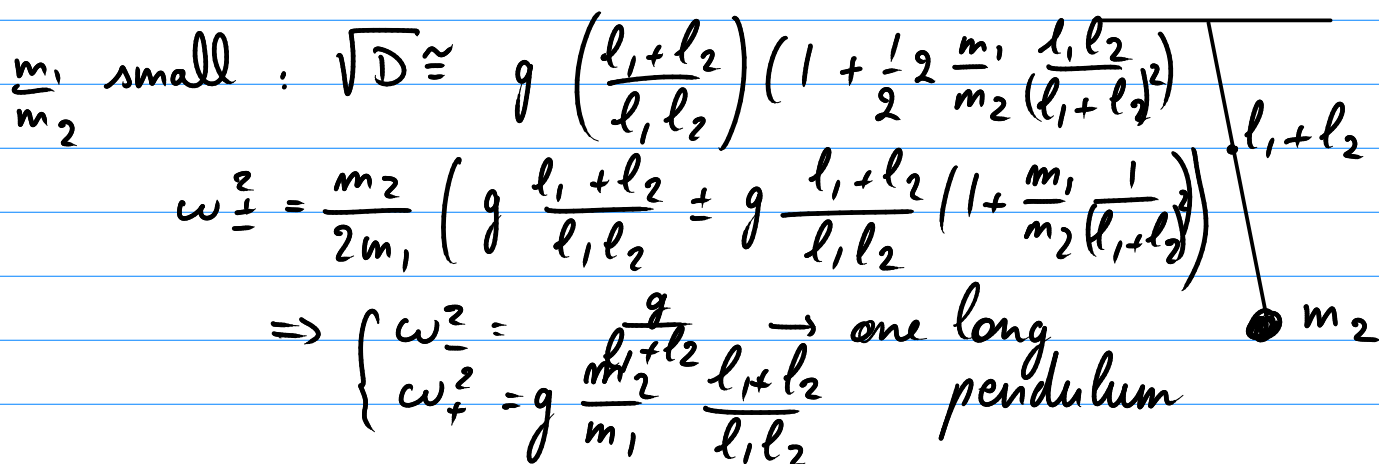 m₁/m₂ small : √D ≅ g ((l₁+l₂)/(l₁l₂)) (1 + 1/2 2 m₁/m₂ l₁l₂/(l₁+l₂)²)
l₁+l₂
ω±² = m₂/2m₁ (g (l₁+l₂)/(l₁l₂) ± g (l₁+l₂)/(l₁l₂) (1 + m₁/m₂ 1/(l₁+l₂)²))
m₂
⇒ { ω₋² = g/(l₁+l₂) → one long
ω₊² = g m₂/m₁ (l₁+l₂)/(l₁l₂) pendulum